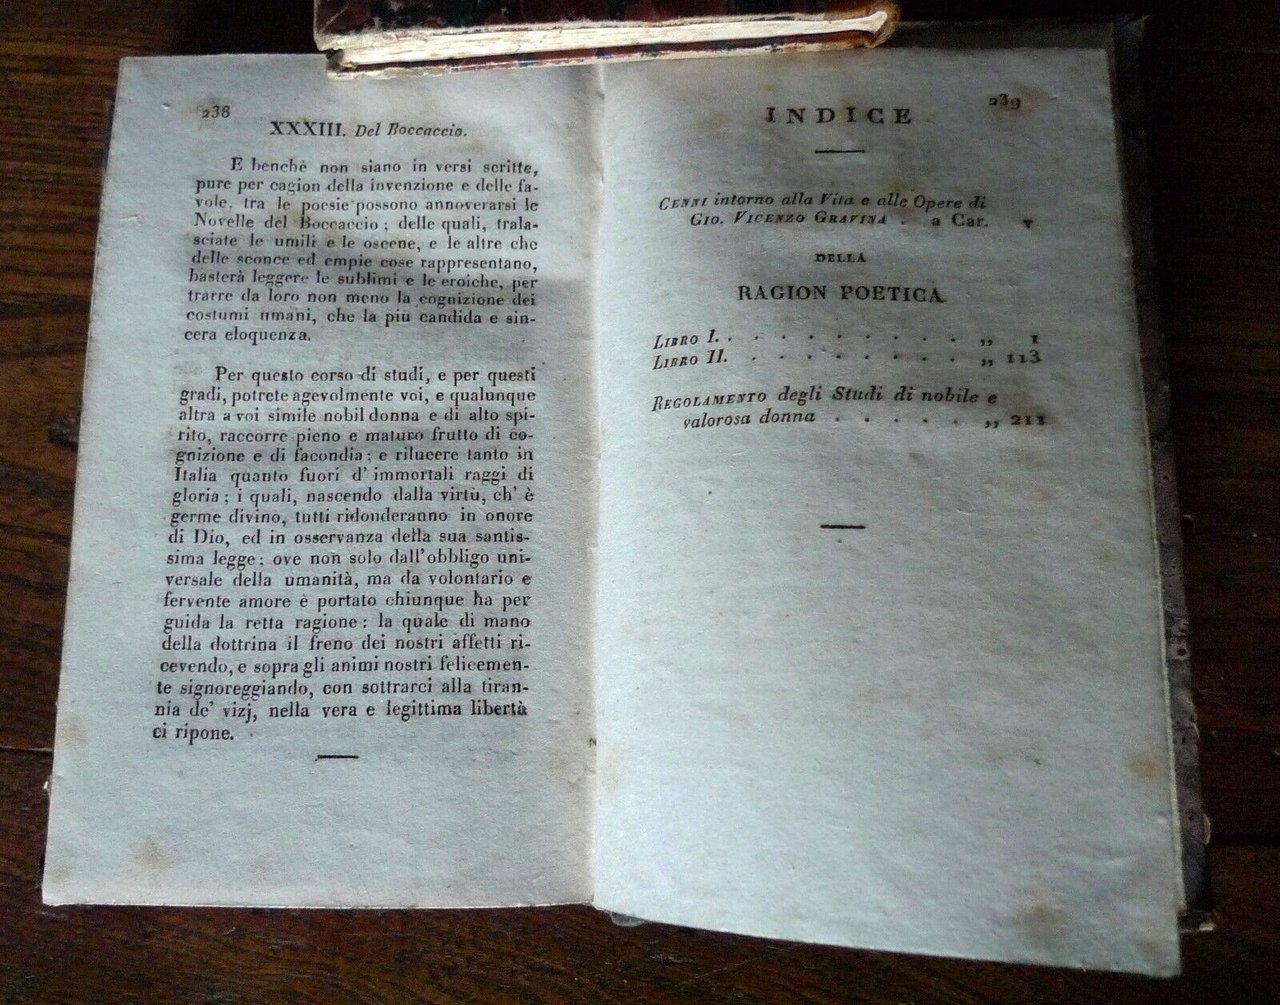 238
XXXIII. Del Boccaccio.
E benchè non siano in versi scritte,
pure per cagion della invenzione e delle fa-
vole, tra le poesie possono annoverarsi le
Novelle del Boccaccio; delle quali, trala-
sciate le umili e le oscene, e le altre che
delle sconce ed empie cose rappresentano,
basterà leggere le sublimi e le eroiche, per
trarre da loro non meno la cognizione dei
costumi umani, che la più candida e sin-
cera eloquenza.
Per questo corso di studi, e per questi
gradi, potrete agevolmente voi, e qualunque
altra a voi simile nobil donna e di alto spi-
rito, raccorre pieno e maturo frutto di co-
gnizione e di facondia; e rilucere tanto in
Italia quanto fuori d' immortali raggi di
gloria; i quali, nascendo dalla virtù, ch' è
germe divino, tutti ridonderanno in onore
di Dio, ed in osservanza della sua santis-
sima legge: ove non solo dall'obbligo uni-
versale della umanità, ma da volontario e
fervente amore è portato chiunque ha per
guida la retta ragione: la quale di mano
della dottrina il freno dei nostri affetti ri-
cevendo, e sopra gli animi nostri felicemen-
te signoreggiando, con sottrarci alla tiran-
nia de' vizj, nella vera e legittima libertà
ci ripone.
239
INDICE
CENNI intorno alla Vita e alle Opere di
GIO. VICENZO GRAVINA . a Car. V
DELLA
RAGION POETICA
LIBRO I. . . . . . . . . . . „ 1
LIBRO II. . . . . . . . . . „ 113
REGOLAMENTO degli Studi di nobile e
valorosa donna . . . . . „ 211